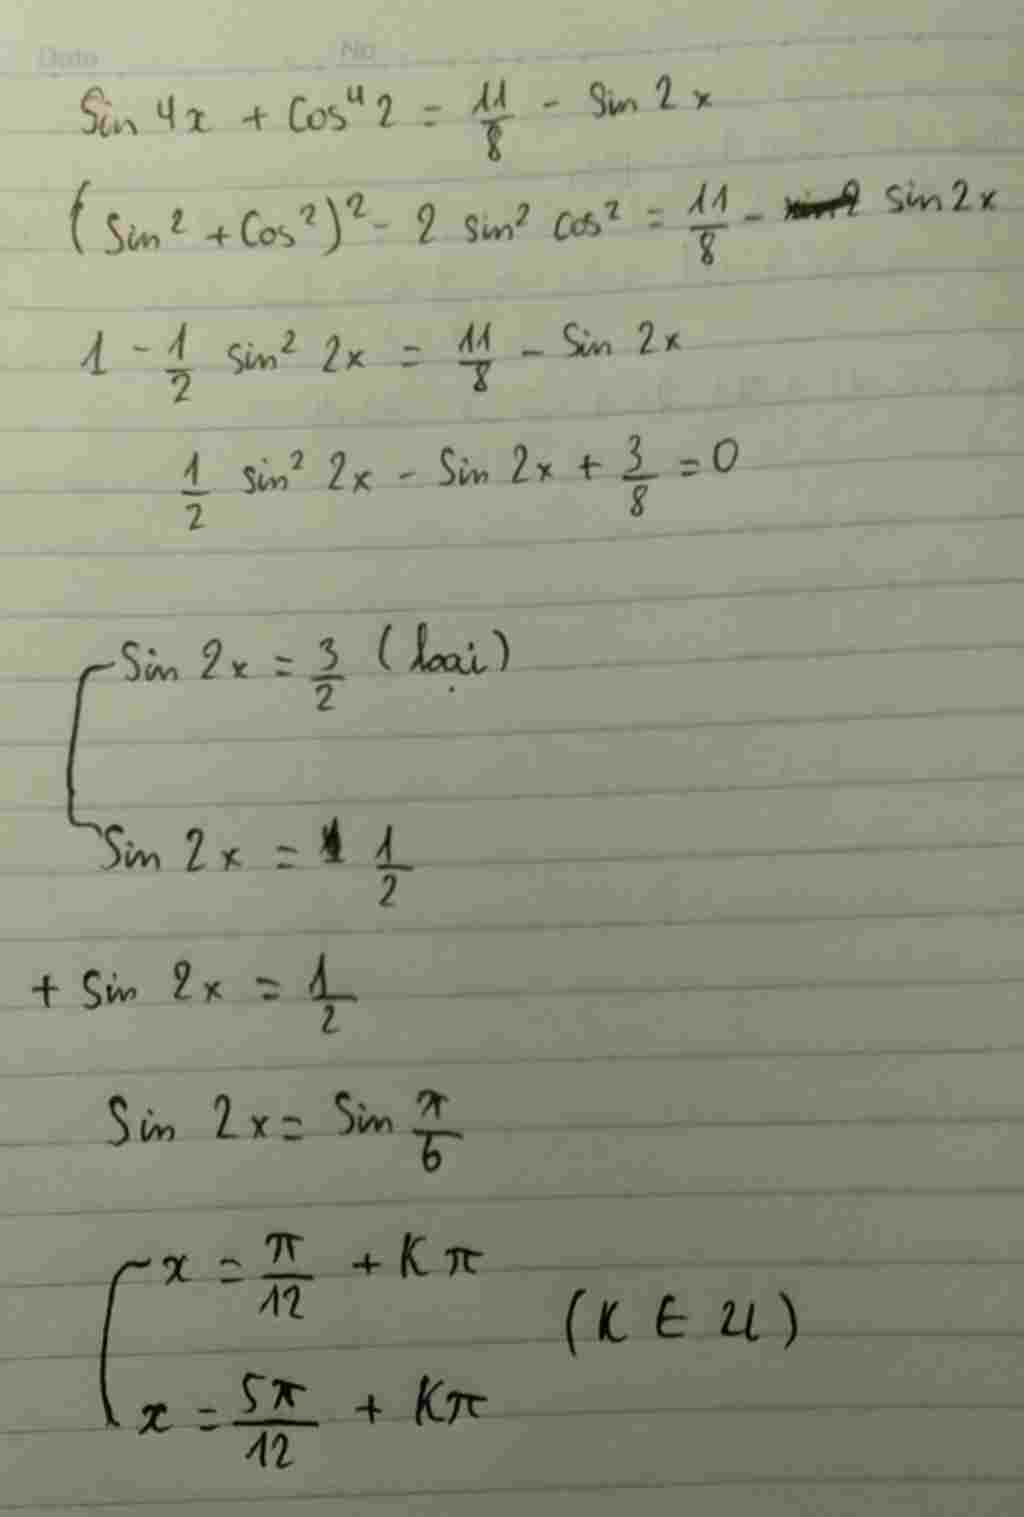 Date No
Sin 4x + Cos⁴ 2 = 11/8 - Sin 2x
(Sin² + Cos²)² - 2 sin² cos² = 11/8 - sin 2x
1 - 1/2 sin² 2x = 11/8 - Sin 2x
1/2 sin² 2x - Sin 2x + 3/8 = 0
Sin 2x = 3/2 (loại)
Sin 2x = 1/2
+ Sin 2x = 1/2
Sin 2x = Sin π/6
x = π/12 + Kπ
(K ∈ Z)
x = 5π/12 + Kπ